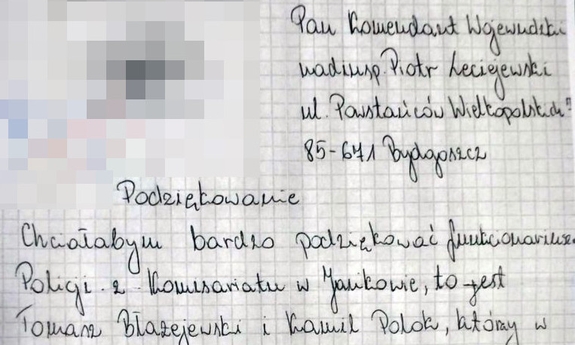 Pan Komendant Wojewódzki
nadinsp. Piotr Leciejewski
ul. Powstańców Wielkopolskich 7
85-671 Bydgoszcz
Podziękowanie
Chciałabym bardzo podziękować funkcjonariuszom
Policji z Komisariatu w Janikowie, to jest
Tomasz Błażejewski i Kamil Polok, którzy w